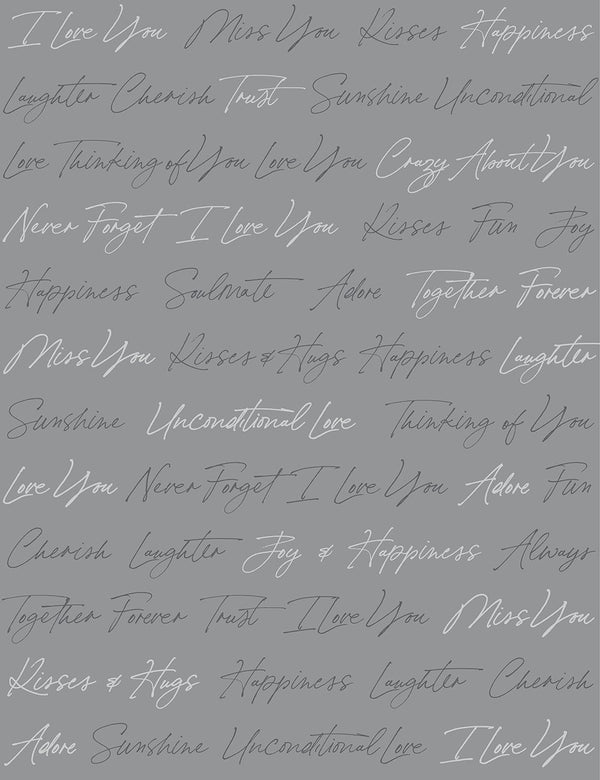 I Love You Miss You Kisses Happiness
Laughter Cherish Trust Sunshine Unconditional
Love Thinking of You Love You Crazy About You
Never Forget I Love You Kisses Fun Joy
Happiness Soulmate Adore Together Forever
Miss You Kisses & Hugs Happiness Laughter
Sunshine Unconditional Love Thinking of You
Love You Never Forget I Love You Adore Fun
Cherish Laughter Joy & Happiness Always
Together Forever Trust I Love You Miss You
Kisses & Hugs Happiness Laughter Cherish
Adore Sunshine Unconditional Love I Love You